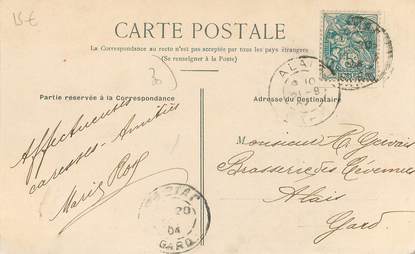 15 €
CARTE POSTALE
La Correspondance au recto n'est pas acceptée par tous les pays étrangers
(Se renseigner à la Poste)
Partie réservée à la Correspondance
Adresse du Destinataire
Affectueuses
caresses - Amitiés
Marie Roy
Monsieur Gervais
Brasserie des Cévennes
Alais
Gard
ALAIS
20
04
GARD